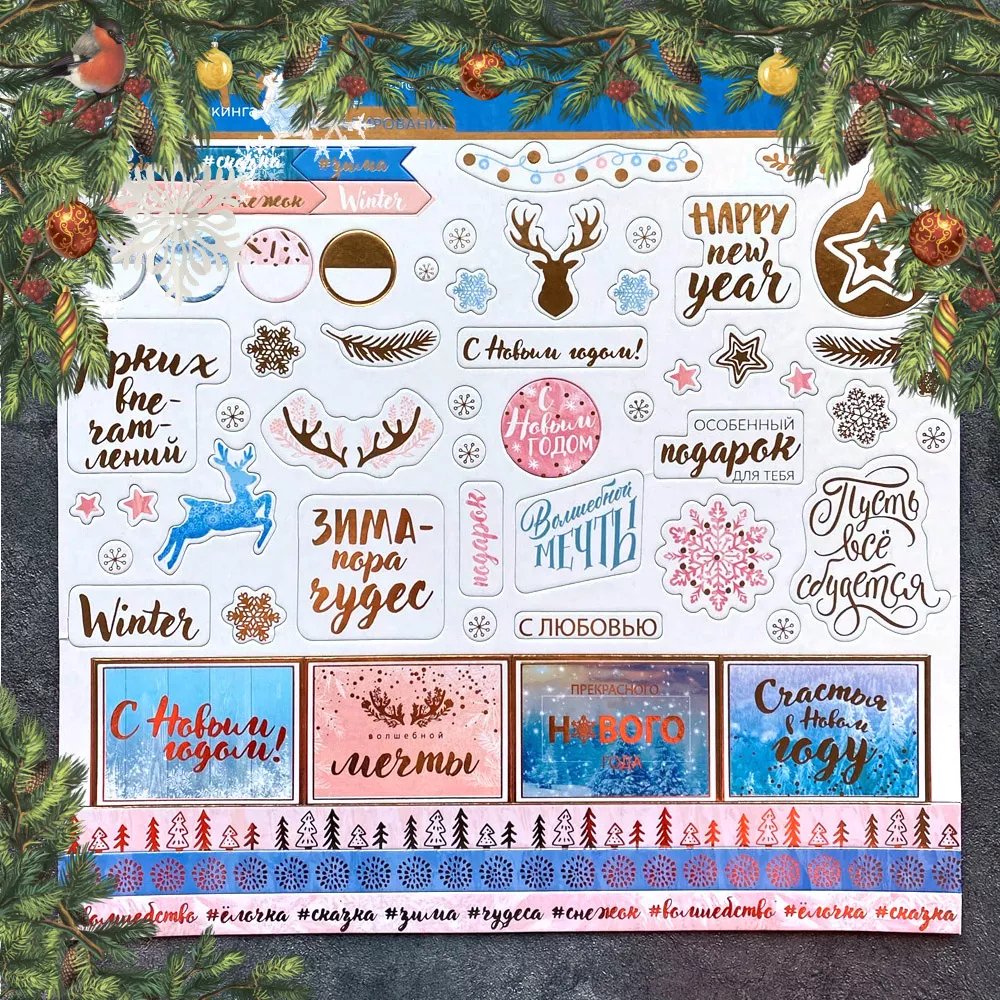 #сказка
#зима
снежок
Winter
HAPPY
new
year
С Новым годом!
Ярких
впе-
чат-
лений
С
Новым
ГОДОМ
ОСОБЕННЫЙ
подарок
ДЛЯ ТЕБЯ
ЗИМА-
пора
чудес
подарок
Волшебной
МЕЧТЫ
Пусть
всё
сбудется
Winter
С ЛЮБОВЬЮ
С Новым
годом!
ВОЛШЕБНОЙ
мечты
ПРЕКРАСНОГО
НОВОГО
ГОДА
Счастья
в Новом
году
волшебство #ёлочка #сказка #зима #чудеса #снежок #волшебство #ёлочка #сказка